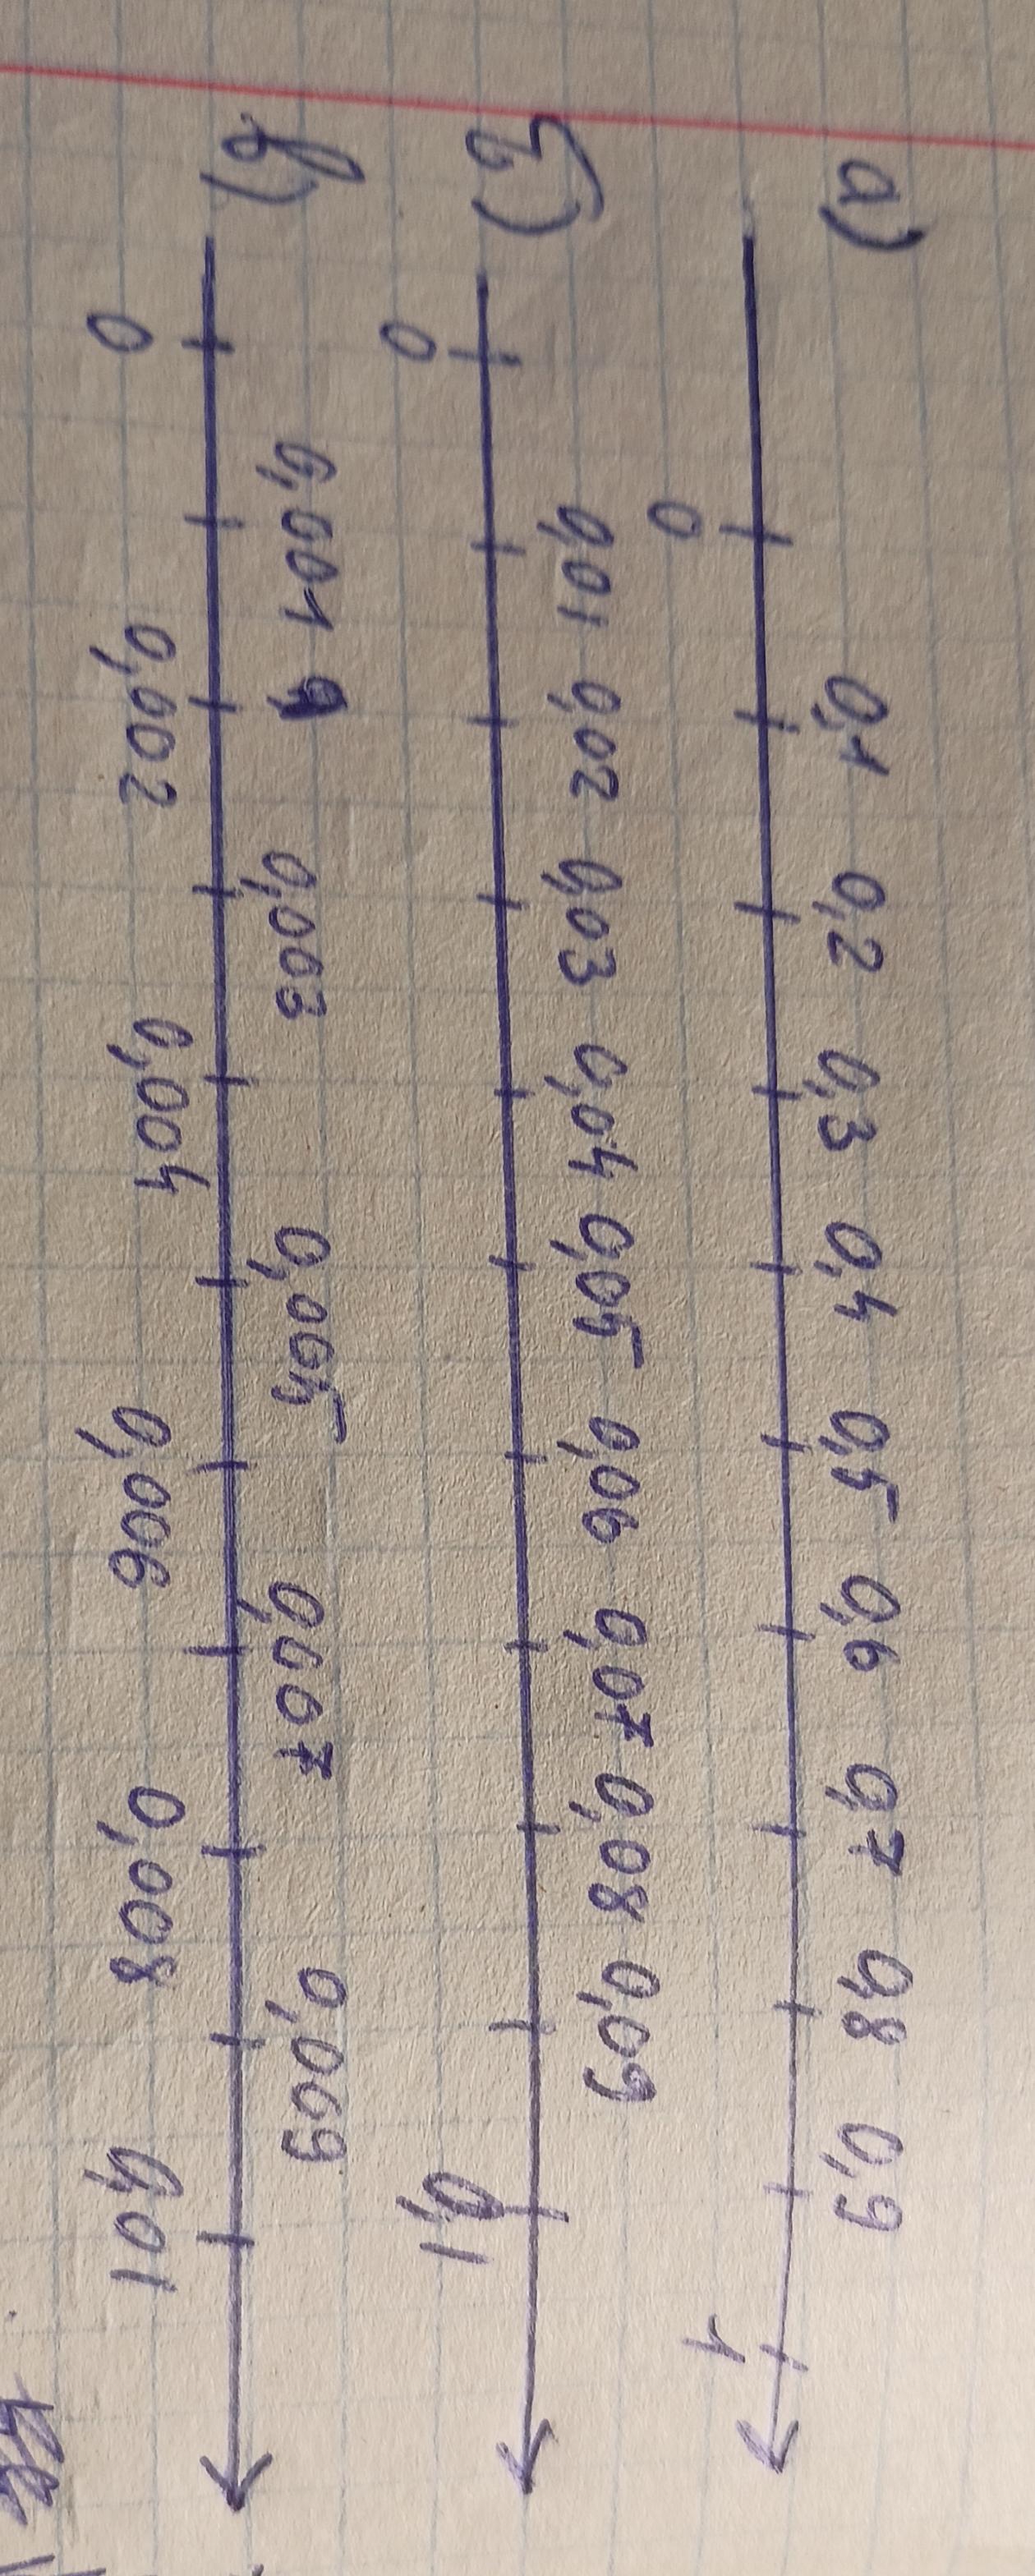 а)
0,1 0,2 0,3 0,4 0,5 0,6 0,7 0,8 0,9
0 1
б)
0,01 0,02 0,03 0,04 0,05 0,06 0,07 0,08 0,09
0 0,1
в)
0,001 0,003 0,005 0,007 0,009
0 0,002 0,004 0,006 0,008 0,01